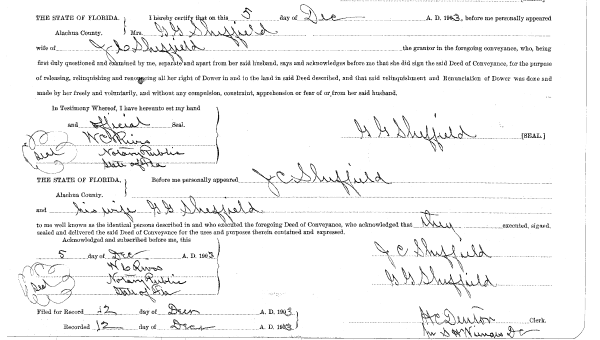 THE STATE OF FLORIDA. I hereby certify that on this 5 day of Dec A. D. 1903, before me personally appeared
Alachua County. Mrs. G G Sheffield
wife of J C Sheffield the grantor in the foregoing conveyance, who, being
first duly questioned and examined by me, separate and apart from her said husband, says and acknowledges before me that she did sign the said Deed of Conveyance, for the purpose
of releasing, relinquishing and renouncing all her right of Dower in and to the land in said Deed described, and that said relinquishment and Renunciation of Dower was done and
made by her freely and voluntarily, and without any compulsion, constraint, apprehension or fear of or from her said husband.
In Testimony Whereof, I have hereunto set my hand
and official Seal.
W C Rives
G G Sheffield [SEAL.]
Seal Notary Public
State of Fla
THE STATE OF FLORIDA. Before me personally appeared J C Sheffield
Alachua County.
and his wife G G Sheffield
to me well known as the identical persons described in and who executed the foregoing Deed of Conveyance, who acknowledged that they executed, signed,
sealed and delivered the said Deed of Conveyance for the uses and purposes therein contained and expressed.
Acknowledged and subscribed before me, this
5 day of Dec A. D. 1903
J C Sheffield
W C Rives
Seal Notary Public
G G Sheffield
State of Fla
Filed for Record 12 day of Decr A. D. 1903
H C Denton Clerk.
Recorded 12 day of Decr A. D. 1903
D C